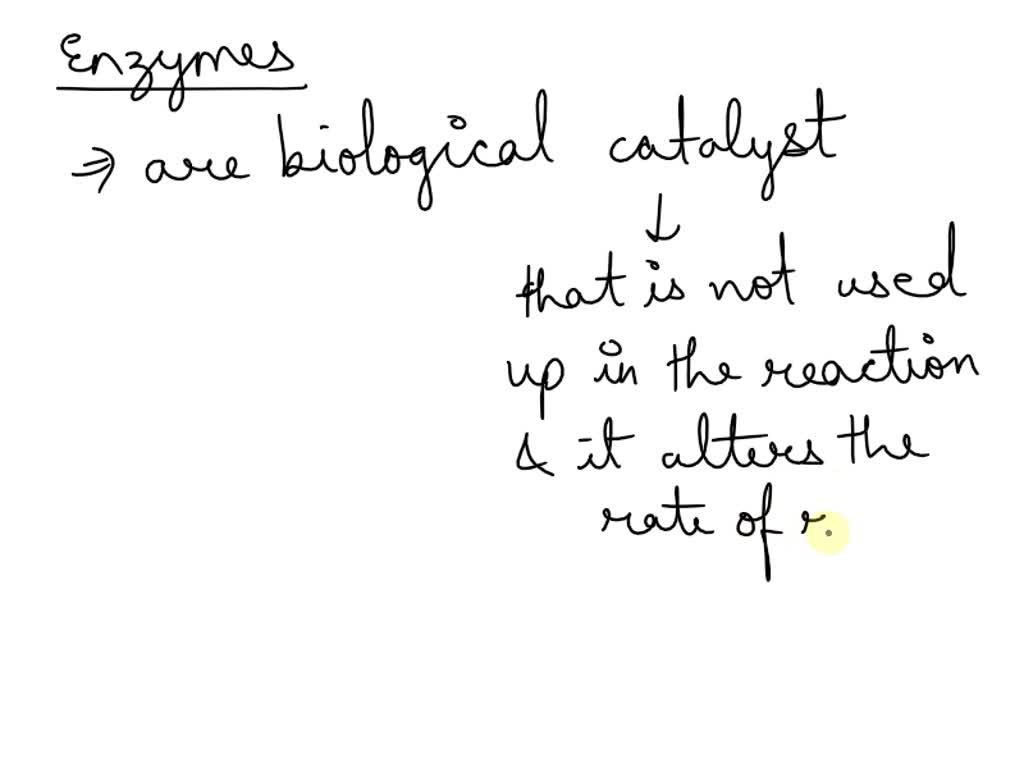 Enzymes
⇒ are biological catalyst
↓
that is not used
up in the reaction
& it alters the
rate of r